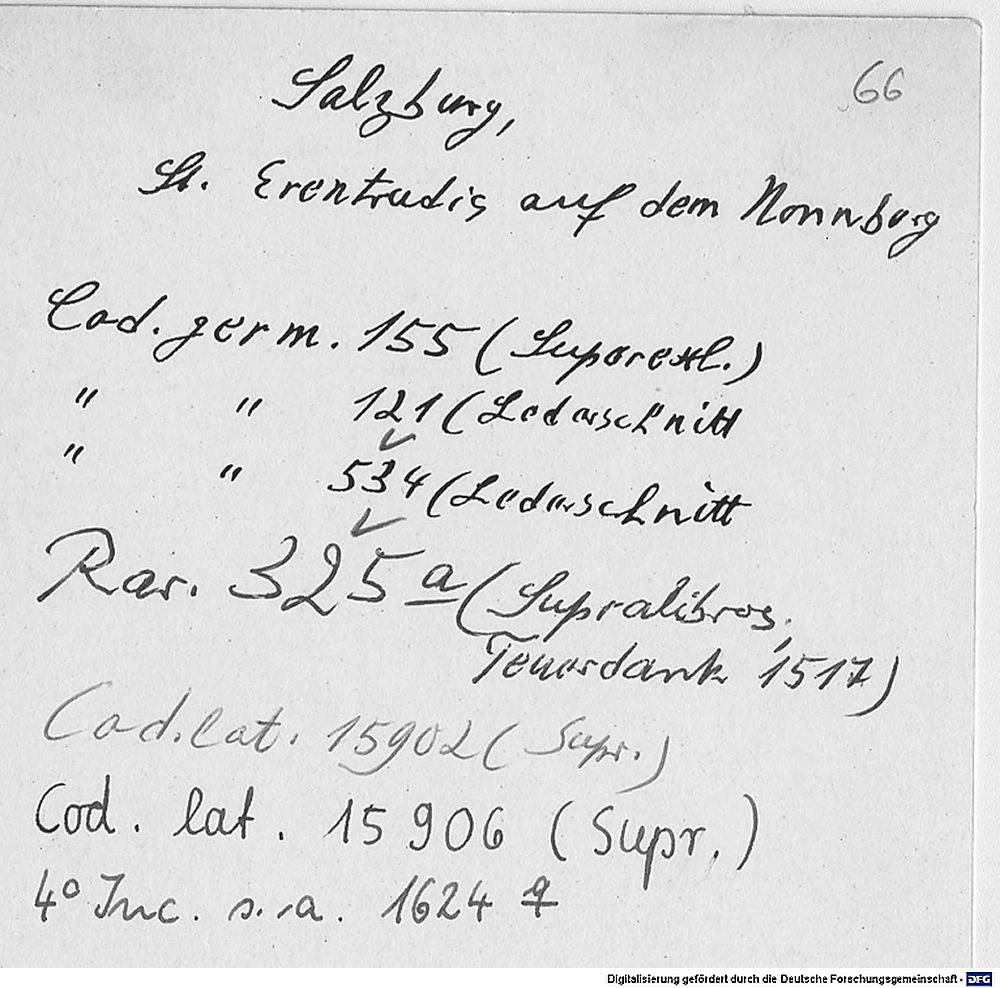 66
Salzburg,
St. Erentrudis auf dem Nonnberg
Cod. germ. 155 (Superexl.)
" " 121 (Lederschnitt
" " 534 (Lederschnitt
Rar. 325 a (Supralibros,
Teuerdank 1517)
Cod. lat. 15902 (Supr.)
Cod. lat. 15906 (Supr.)
4° Inc. s. a. 1624
Digitalisierung gefördert durch die Deutsche Forschungsgemeinschaft - DFG